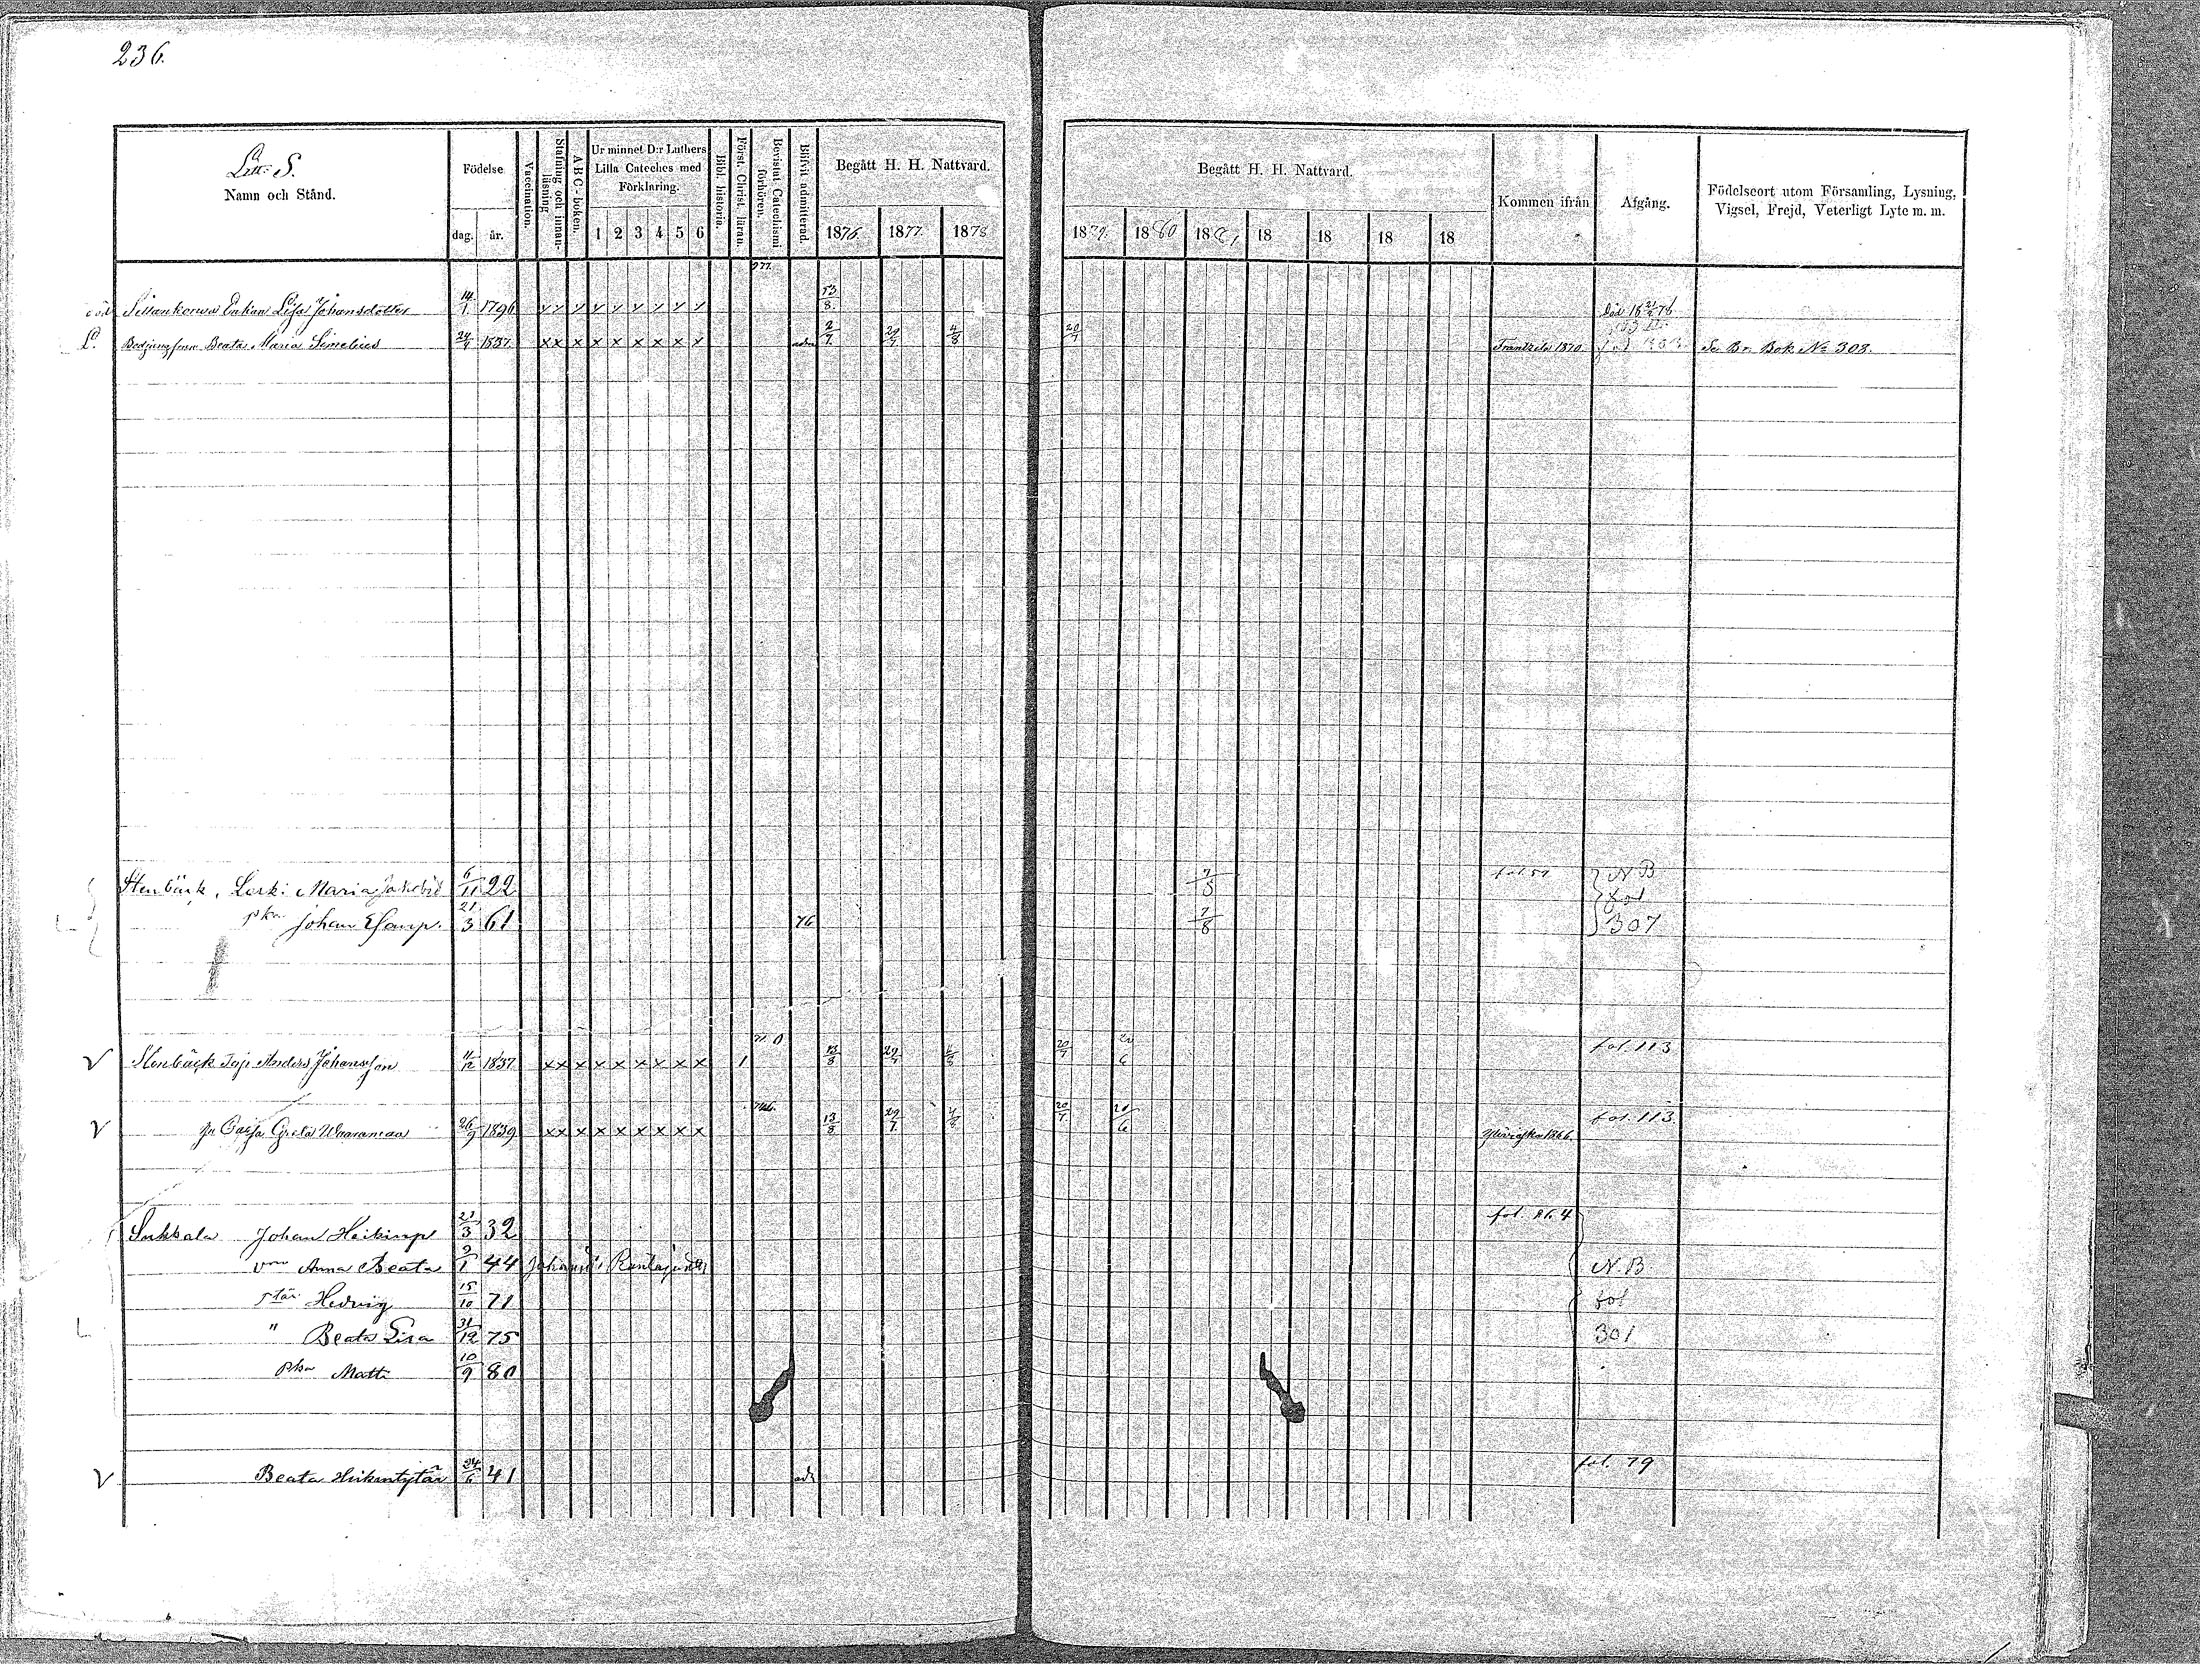 236.
Litt. S.
Namn och Stånd.
Födelse
dag. år.
Vaccination.
Stafning och innan-läsning
ABC-boken.
Ur minnet D:r Luthers Lilla Cateches med Förklaring.
1 2 3 4 5 6
Bibl. historia.
Först. Christ. läran.
Bevistat Catechismi förhören.
Blifvit admitterad.
Begått H. H. Nattvard.
1876. 1877. 1878
Begått H. H. Nattvard.
1879. 1880 1881 18 18 18 18
Kommen ifrån
Afgång.
Födelseort utom Församling, Lysning, Vigsel, Frejd, Veterligt Lyte m. m.
Enkan Lisa Johansdotter 14/1 1796 y y y y y y y y y 13/8 Död 18 76
Beata Maria Simelius 24/4 1837 x x x x x x x x x 2/7 29/7 4/8 20/7 Frantsila 1870 Se Br. Bok No 308.
Stenbäck, Leski Maria Jakobid 6/11 22 7/8 fol 57 N B
fol
pka Johan Esaip. 21/3 61 76 7/8 307
Stenbäck Anders Johansson 11/12 1837 x x x x x x x x x 1 13/8 29/7 4/8 20/7 20/6 fol. 113
Caisa Greta Waaranmaa 26/9 1839 x x x x x x x x x 13/8 29/7 4/8 20/7 20/6 1866. fol. 113.
Sukkala Johan Heikinp 21/3 32 fol. 264
vm Anna Beata 9/1 44 Johanni N.B
tär Hedvig 15/10 71 fol
" Beata Lisa 31/12 75 301
pka Matti 10/9 80
Beata Heikintytär 24/6 41 adm fol. 79